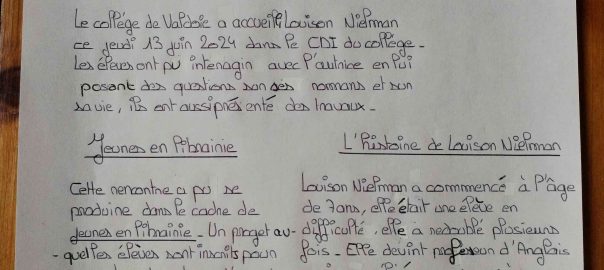 Le collége de Valdoie a accueilli Louison Nielman
ce jeudi 13 juin 2024 dans le CDI du collége.
Les élèves ont pu interragir avec l'autrice en lui
posant des questions sur ses romans et sur
sa vie, ils ont aussi présenté des travaux.
Jeunes en librairie
Cette rencontre a pu se
produire dans le cadre de
jeunes en librairie. Un projet au-
-quel les élèves sont inscrits pour
L'histoire de Louison Nielman
Louison Nielman a commmencé à l'âge
de 7 ans, elle était une élève en
difficulté, elle à redoublé plusieurs
fois. Elle devint professeur d'Anglais